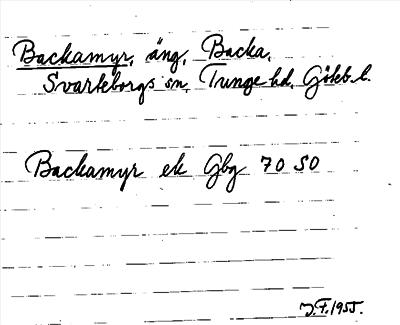 Backamyr, äng, Backa,
Svarteborgs sn, Tunge hd, Göteb. l.
Backamyr ek Gbg 70 SO
J.F. 1955.